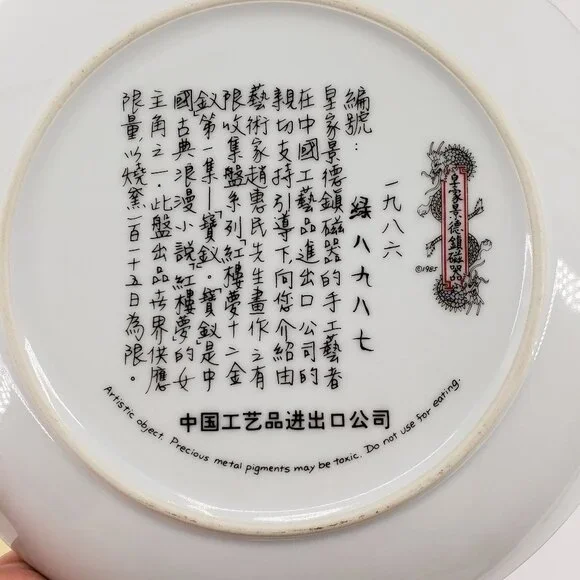 皇家景德鎮磁器
©1985
一九八六
綠八九八七
編號：
皇家景德鎮磁器的手工藝者
在中國工藝品進出口公司的
親切支持引導下向您介紹由
藝術家趙惠民先生畫作之有
限收集盤系列「紅樓夢十二金
釵」第一集—「寶釵」。「寶釵」是中
國古典浪漫小說「紅樓夢」的女
主角之一．此盤出品世界供應
限量以燒窯一百一十五日為限。
中国工艺品进出口公司
Artistic object. Precious metal pigments may be toxic. Do not use for eating.